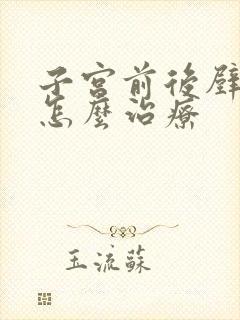 子宮前後壁
怎麼治療
玉流蘇